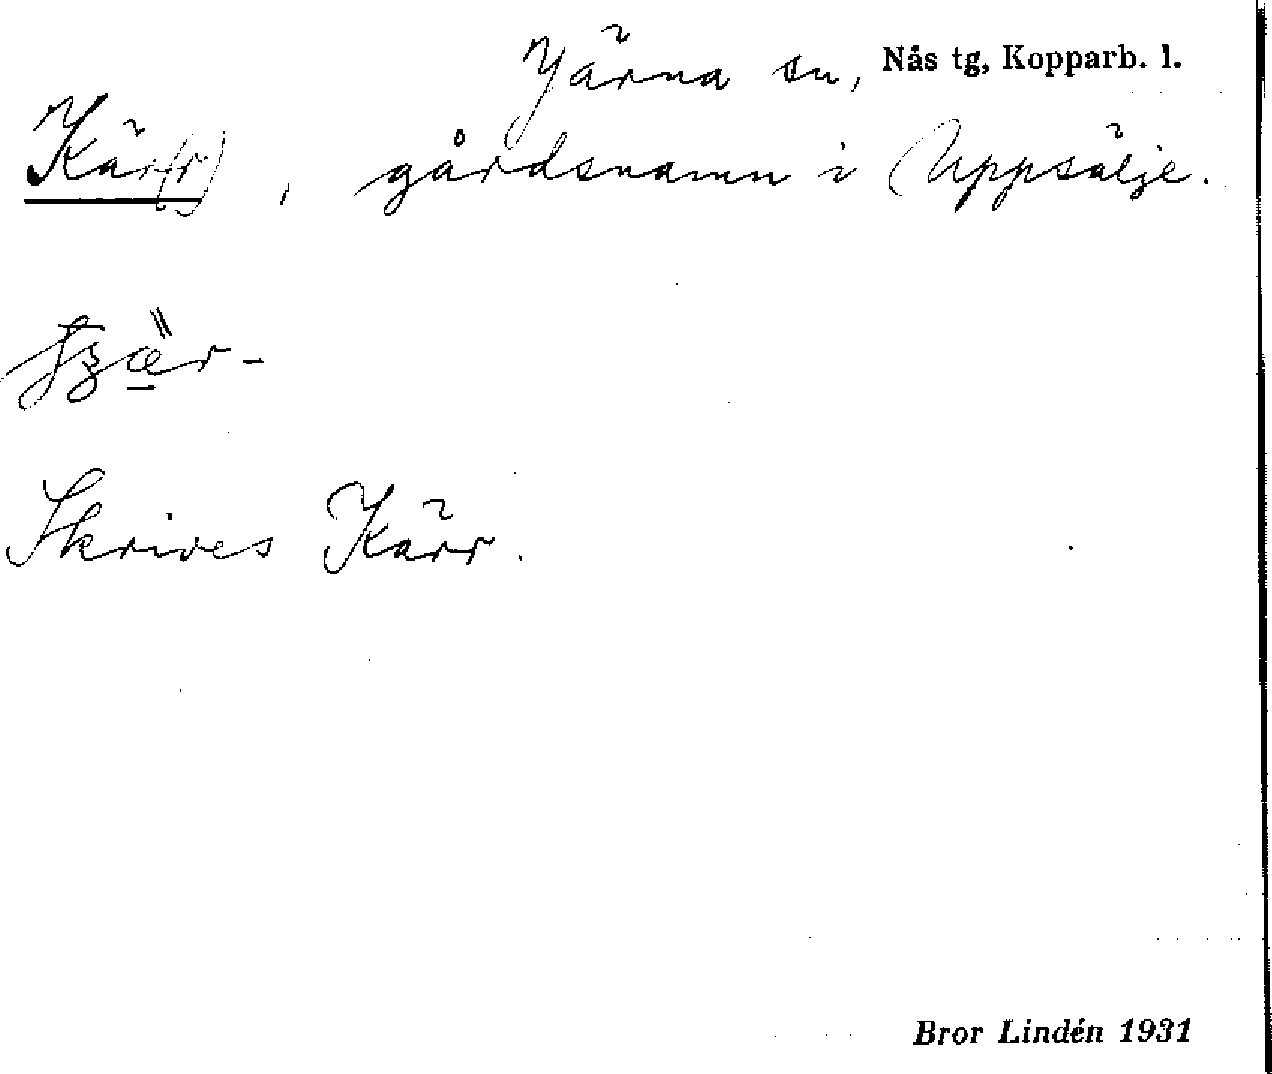 Järna sn, Nås tg, Kopparb. l.
Kär(r), gårdsnamn i Uppsälje.
Skrives Kärr.
Bror Lindén 1931